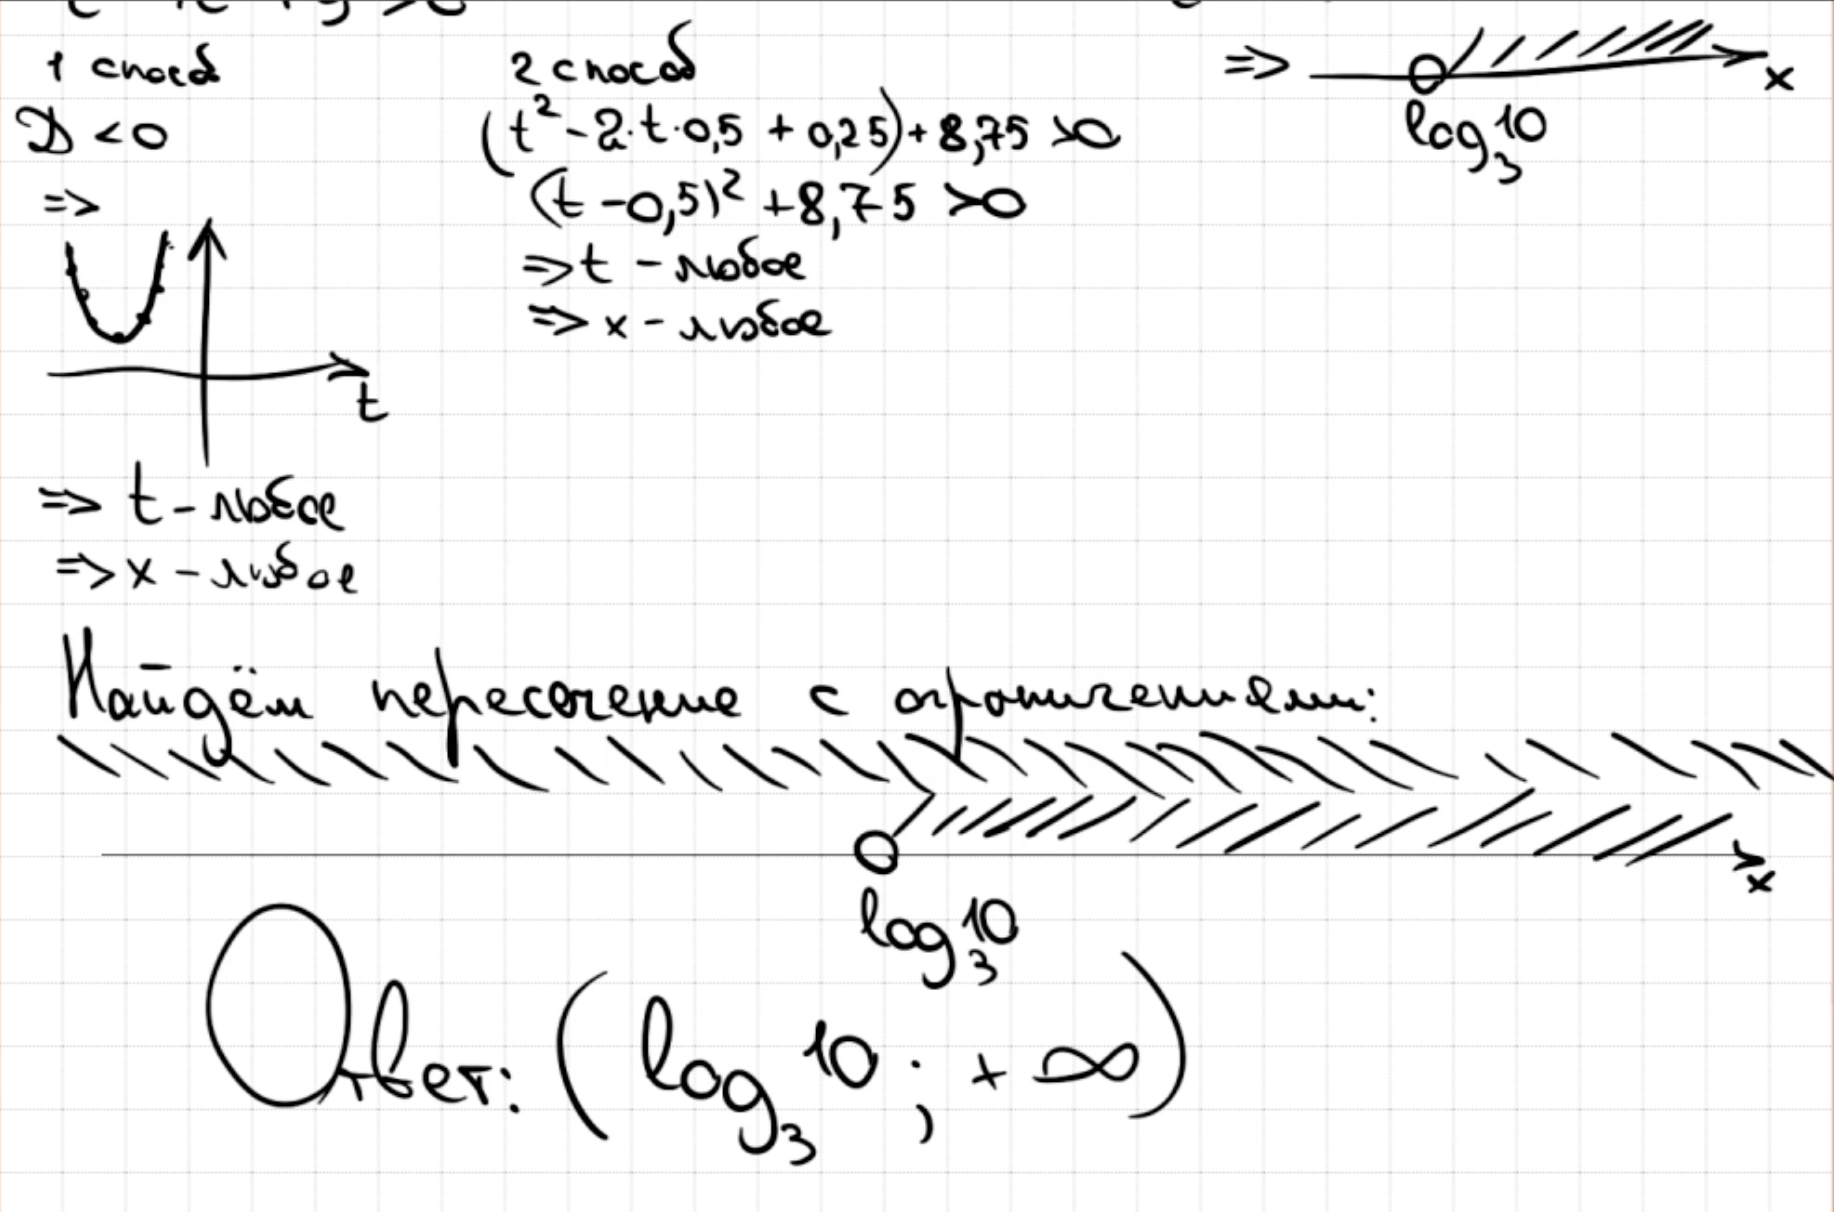 1 способ
D < 0
=>
t
=> t - любое
=> x - любое
2 способ
(t² - 2·t·0,5 + 0,25) + 8,75 > 0
(t - 0,5)² + 8,75 > 0
=> t - любое
=> x - любое
=>
x
log₃10
Найдём пересечение с ограничениями:
x
log₃10
Ответ: (log₃10; +∞)